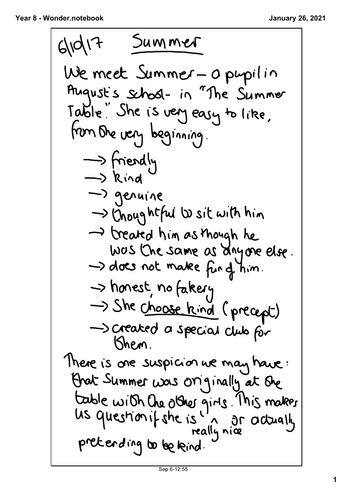 Year 8 - Wonder.notebook
January 26, 2021
6/10/17 Summer
We meet Summer – a pupil in
August's school - in "The Summer
Table". She is very easy to like,
from the very beginning.
→ friendly
→ kind
→ genuine
→ thoughtful to sit with him
→ treated him as though he
was the same as anyone else.
→ does not make fun of him.
→ honest, no fakery
→ She choose kind (precept)
→ created a special club for
them.
There is one suspicion we may have:
that Summer was originally at the
table with the other girls. This makes
us question if she is ' ^ or actually
really nice
pretending to be kind.
Sep 6-12:55
1